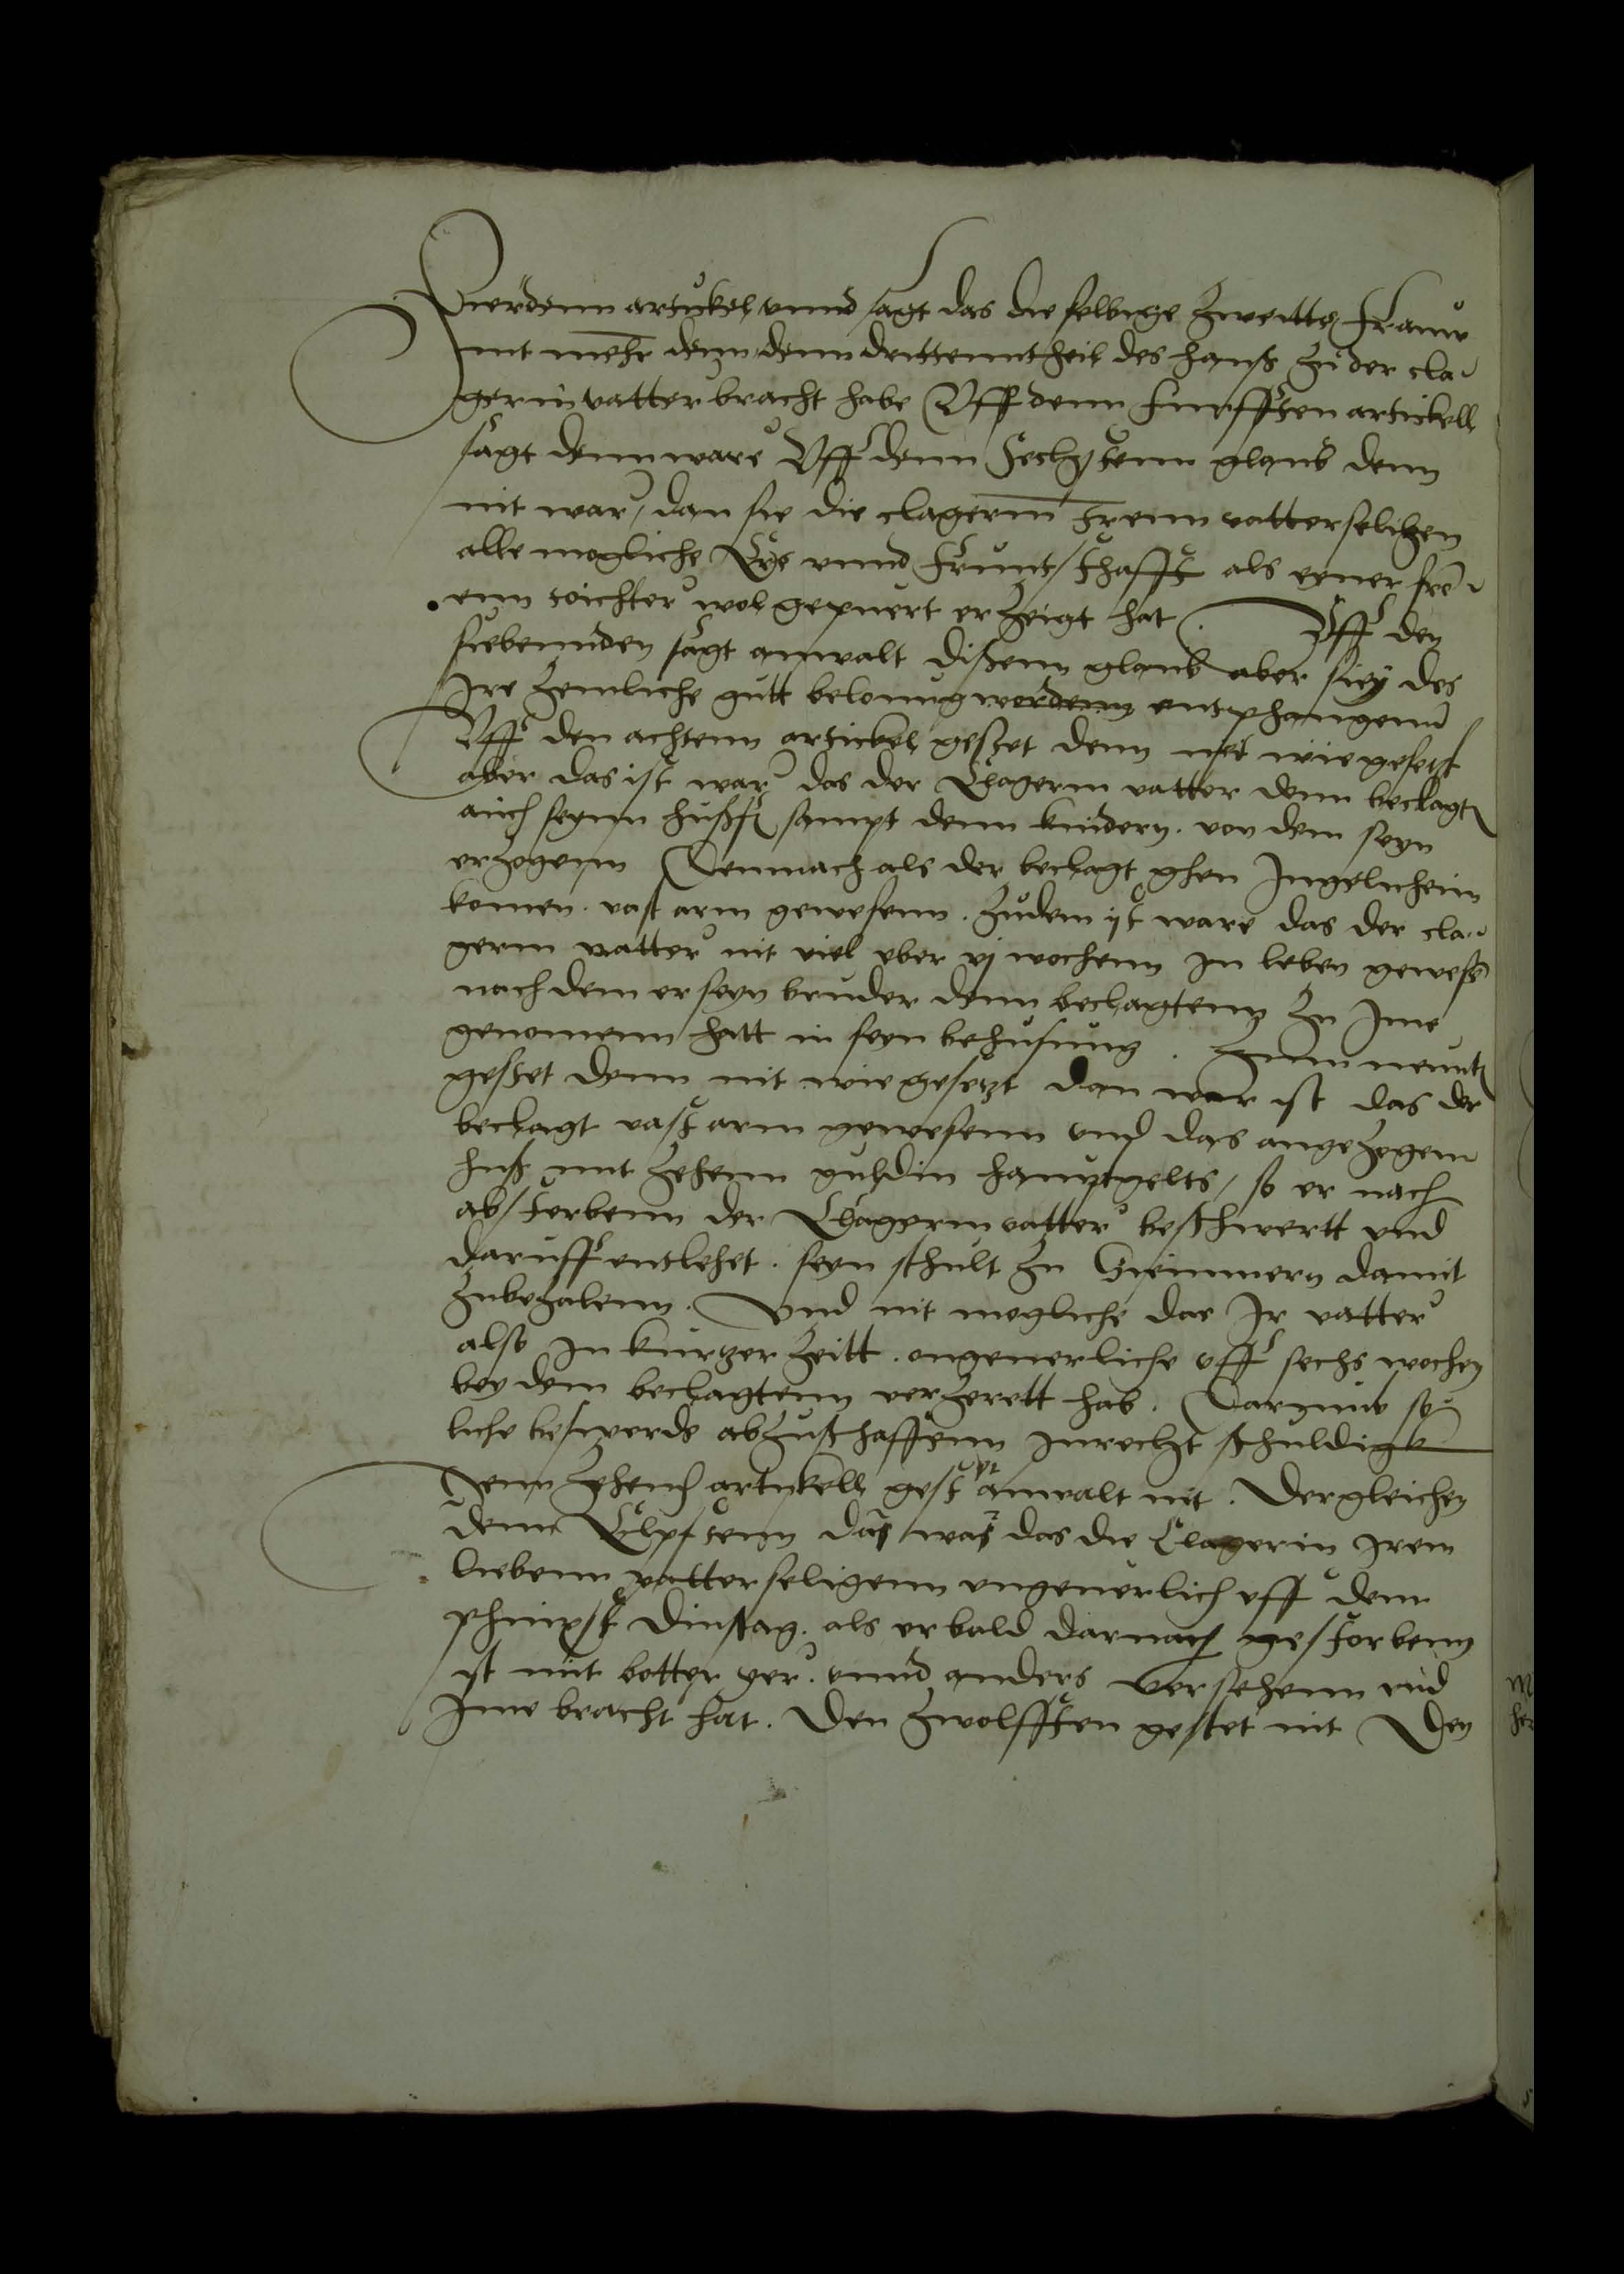 Vierdenn artickel vnnd sagt das die selbige zweitte frauw
nit mehr denn denn drittenntheil des hauß zu der cla-
gerin vatter bracht habe Vff denn funfften artickell
sagt denn ware Vff denn sechstenn glaub denn
nit war, dan sie die clagerin Irenn vatter selichen
alle mogliche Ere vnnd fruntschafft als eyner fre-
enn doichter wol gepuert erzeigt hat Vff den
siebennden sagt anwalt dißenn glaub aber sey des
Ire zemliche gutt belonung wordenn entphangenn
Vff den achtenn artickel gestet denn nit wie gesetzt
aber das ist war das der Clagerin vatter denn beclagten
auch seynn hußf sampt denn kindern. von dem seyn
erzogenn Dennach als der beclagt ghen Ingelnheim
komen. vast arm gewesenn. zudem ist ware das der cla-
gerin vatter nit viel vber vj wochenn in leben gewesen
nach dem er seyn bruder denn beclagtenn zu Ime
genomenn hatt in seyn behusung. Zum neunten
gestet denn nit wie gesetzt dan war ist das der
beclagt vast arm gewesenn vnd das angezogenn
huß mit zehenn guldin hauptgelts, so er nach
absterbenn der Clagerin vatter beschwertt vnd
daruff entlehet. seyn schult zu Simmern damit
zubezalenn. Vnd nit mogliche das Ir vatter
also in kurtzer zeitt. ongeuerliche vff sechs wochen
bey dem beclagtenn verzerett hab. Darumb so-
liche beswerde abzuschaffenn inrecht schuldig
Denn zehend artickell gestet anwalt nit. Dergleichen
denn Eilpstenn das was das die Clagerin Irem
liebenn vatter seligenn vngeuerlich vff denn
phingst dinstag. als er bald darnach gestorbenn
ist mit botter eyer. vnnd anders versehenn vnd
Ime bracht hat. Den zwolfften gestet nit Den